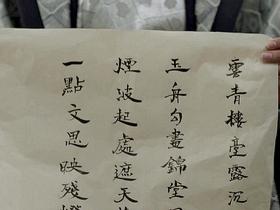 雲青樓臺露沉
玉舟勾畫錦堂
煙波起處遮天
一點文思映殘燈